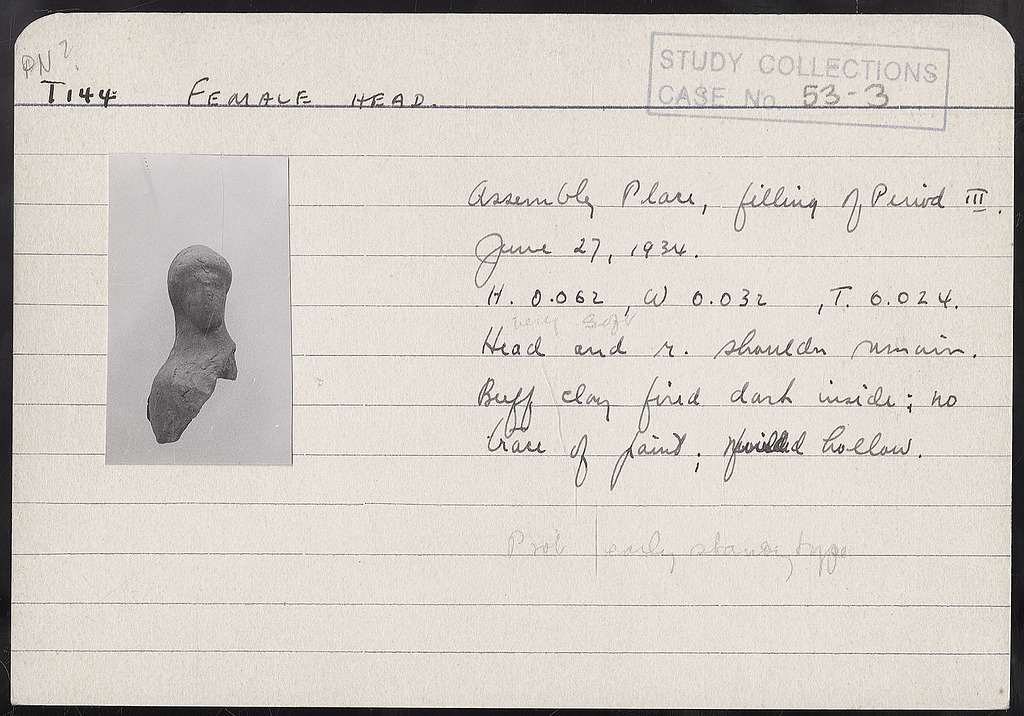 PN?
T144 FEMALE HEAD.
STUDY COLLECTIONS
CASE No. 53-3
Assembly Place, filling of Period III.
June 27, 1934.
H. 0.062, W 0.032, T. 0.024.
very soft
Head and r. shoulder remain.
Buff clay fired dark inside; no
trace of paint; hollow.
Prob early standing type